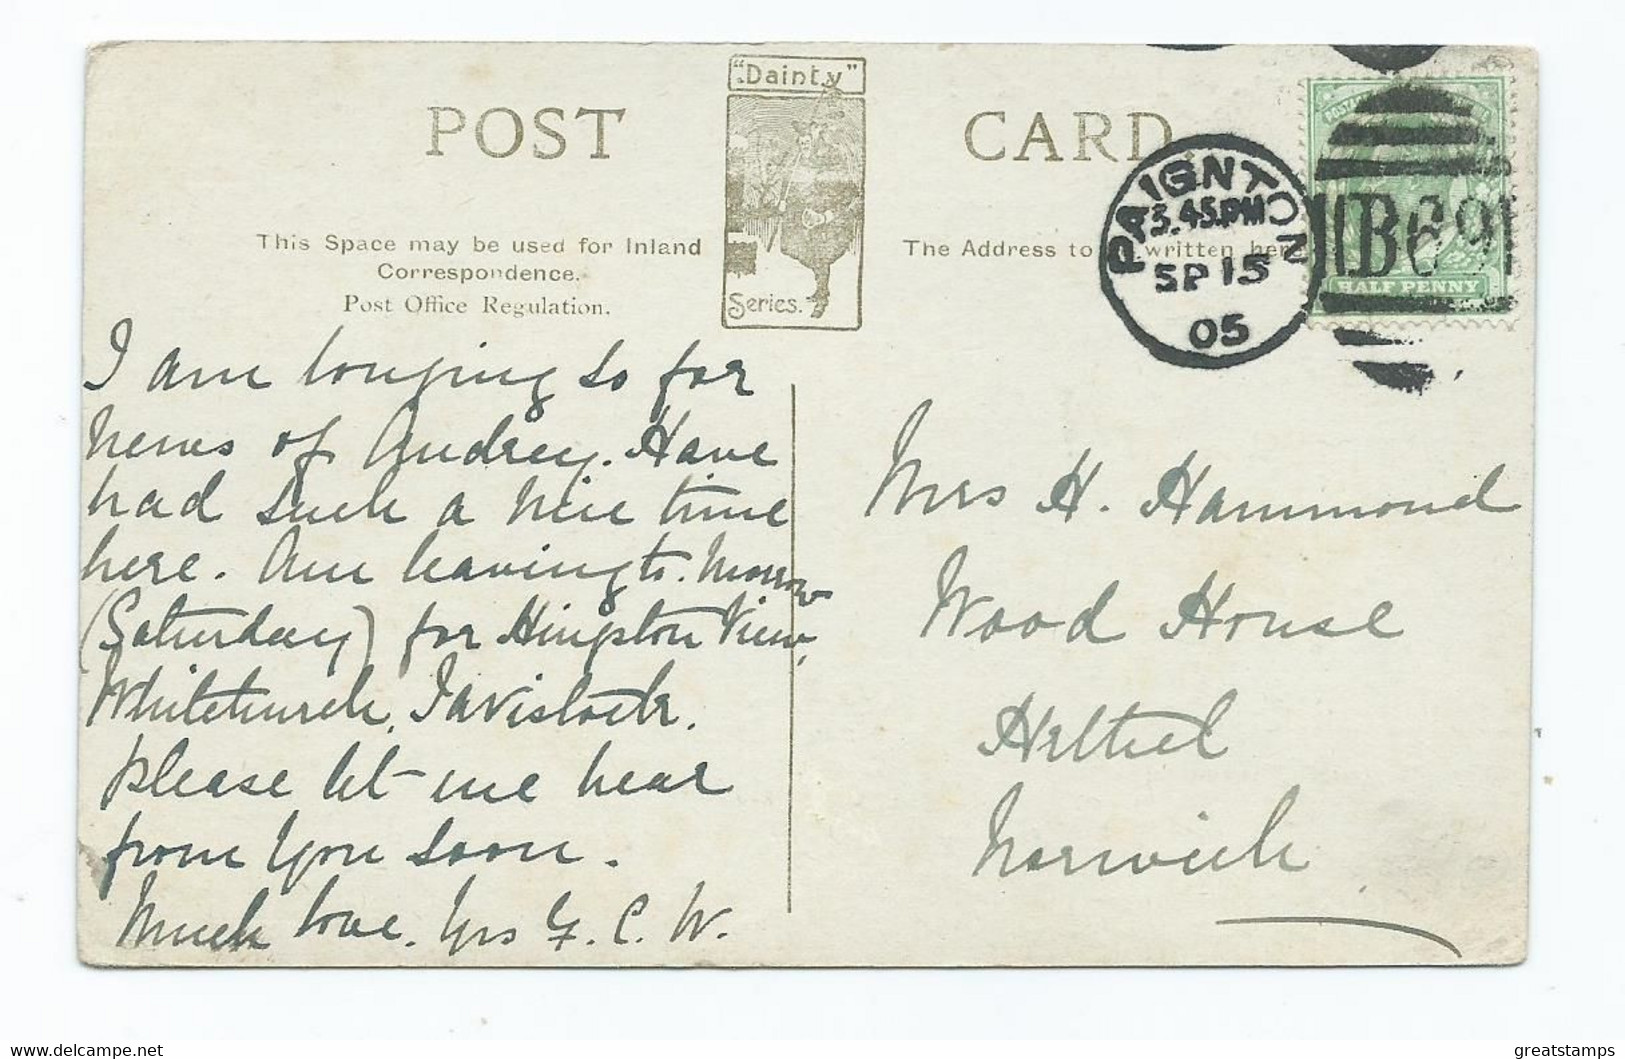 "Dainty"
Series.
POST CARD
This Space may be used for Inland
Correspondence.
Post Office Regulation.
The Address to be written here
PAIGNTON
3.45 PM
SP 15
05
B69
HALF PENNY
I am longing so for
news of Audrey. Have
had such a nice time
here. Am leaving to-morrow
(Saturday) for Hingston View,
Whitchurch, Tavistock.
Please let me hear
from you soon.
Much love. Yrs F. C. W.
Mrs H. Hammond
Wood House
Hethel
Norwich
www.delcampe.net
greatstamps